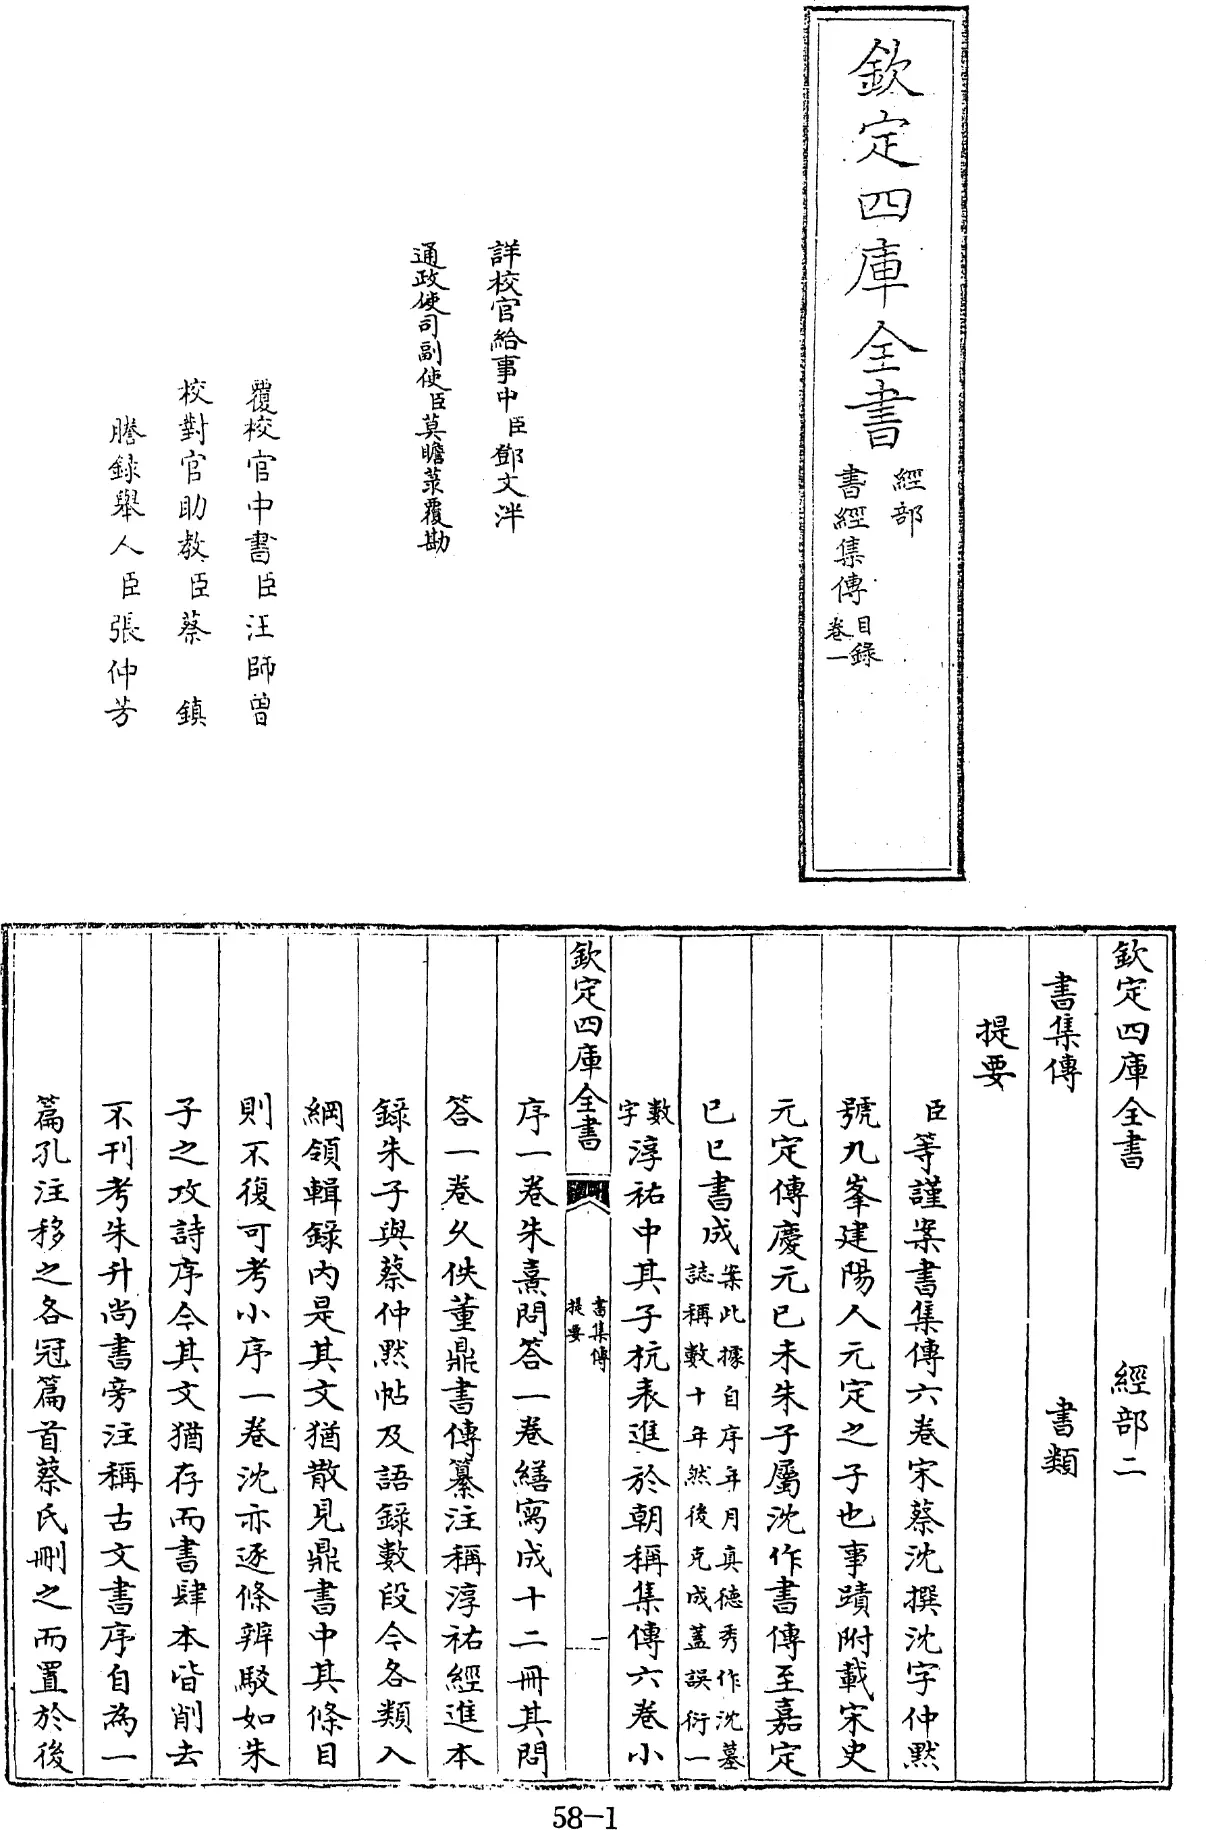 欽定四庫全書
經部
書經集傳
目錄
卷一
詳校官給事中臣鄧文泮
通政使司副使臣莫瞻菉覆勘
覆校官中書臣汪師曾
校對官助教臣蔡鎮
謄錄舉人臣張仲芳
欽定四庫全書 經部二
書集傳 書類
提要
臣等謹案書集傳六卷宋蔡沈撰沈字仲黙
號九峯建陽人元定之子也事蹟附載宋史
元定傳慶元己未朱子屬沈作書傳至嘉定
己巳書成案此據自序年月真德秀作沈墓
誌稱數十年然後克成蓋誤衍一
數
字淳祐中其子杭表進於朝稱集傳六卷小
欽定四庫全書
書集傳
提要
一
序一卷朱熹問答一卷繕寫成十二冊其問
答一卷久佚董鼎書傳纂注稱淳祐經進本
錄朱子與蔡仲黙帖及語錄數段今各類入
綱領輯錄内是其文猶散見鼎書中其條目
則不復可考小序一卷沈亦逐條辨駁如朱
子之攻詩序今其文猶存而書肆本皆削去
不刊考朱升尚書旁注稱古文書序自為一
篇孔注移之各冠篇首蔡氏刪之而置於後
58-1